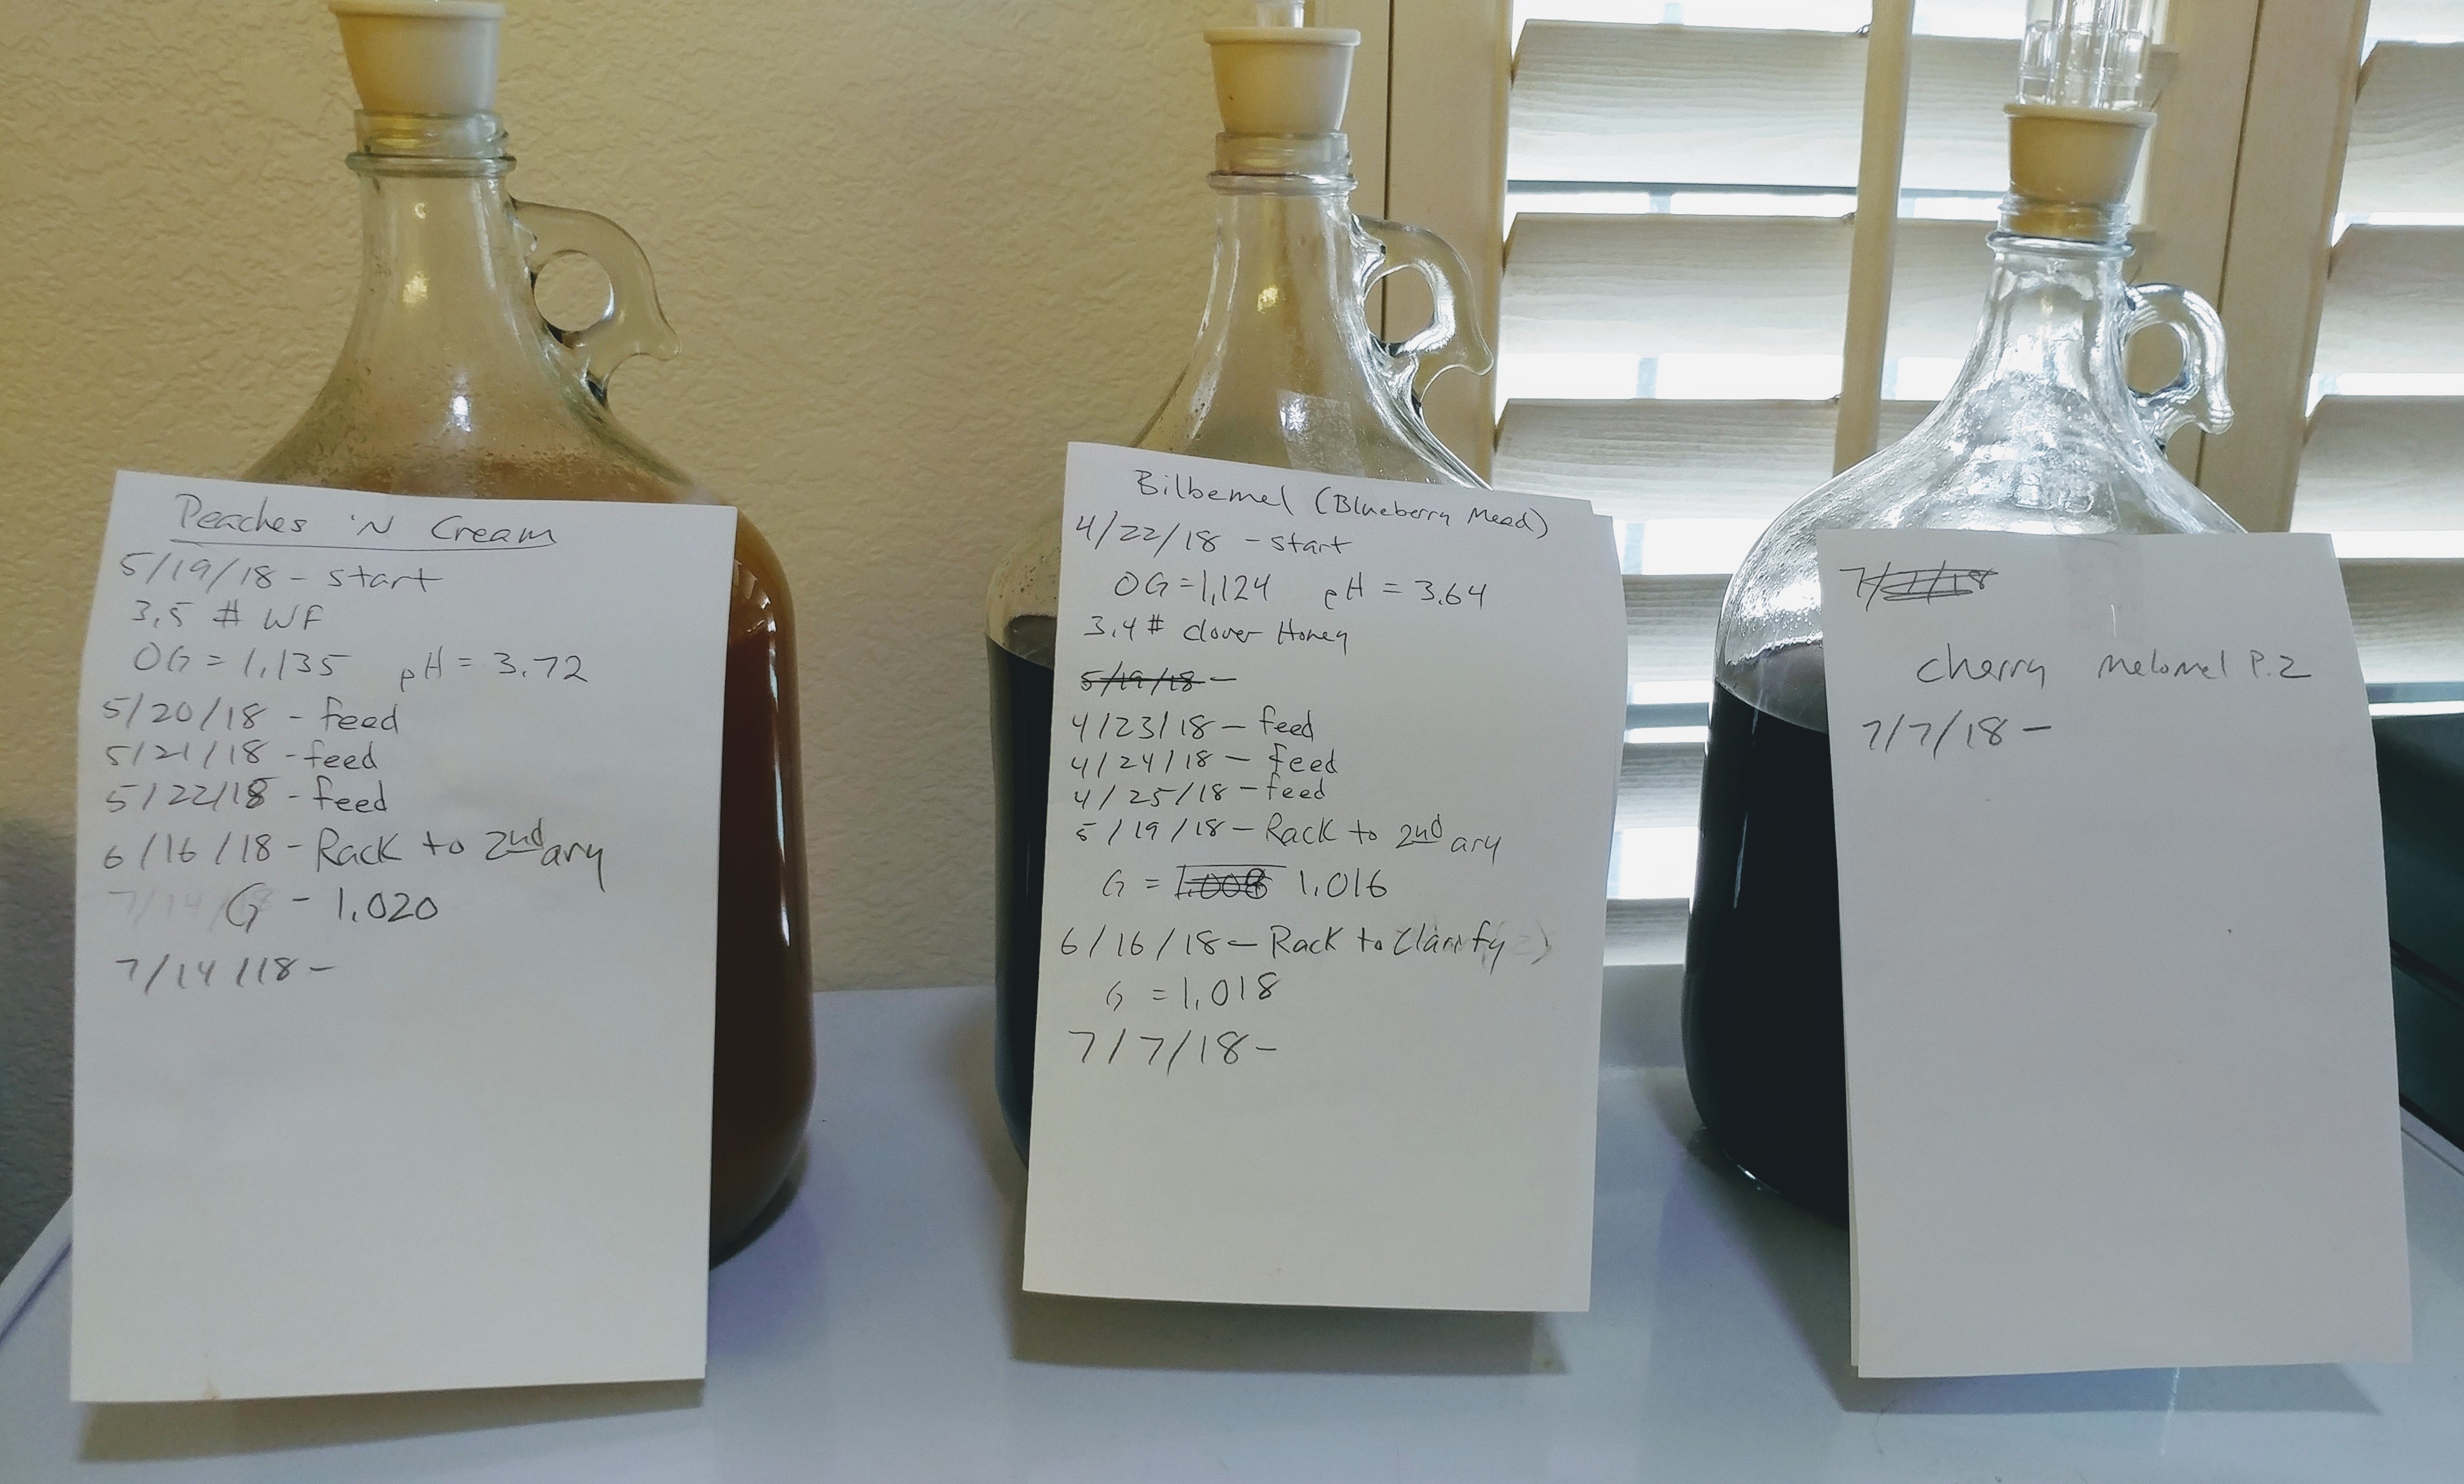 Peaches 'N Cream
5/19/18 - start
3.5 # WF
OG = 1.135 pH = 3.72
5/20/18 - feed
5/21/18 - feed
5/22/18 - feed
6/16/18 - Rack to 2nd ary
7/14/18 G - 1.020
7/14/18 -
Bilbemel (Blueberry Mead)
4/22/18 - start
OG = 1.124 pH = 3.64
3.4 # Clover Honey
5/19/18 -
4/23/18 - feed
4/24/18 - feed
4/25/18 - feed
5/19/18 - Rack to 2nd ary
G = 1.008 1.016
6/16/18 - Rack to Clarify
G = 1.018
7/7/18 -
7/7/18
cherry melomel P.2
7/7/18 -